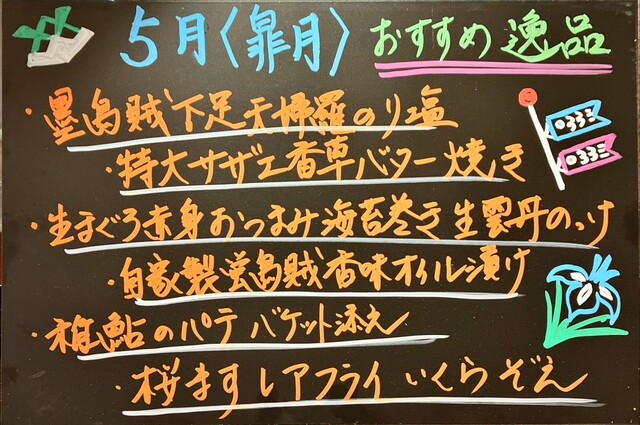 5月〈皐月〉おすすめ逸品
・墨烏賊下足天婦羅のり塩
・特大サザエ香草バター焼き
・生まぐろ赤身おつまみ海苔巻き生雲丹のっけ
・自家製蛍烏賊香味オイル漬け
・稚鮎のパテ バケット添え
・桜ますレアフライいくらぞえ